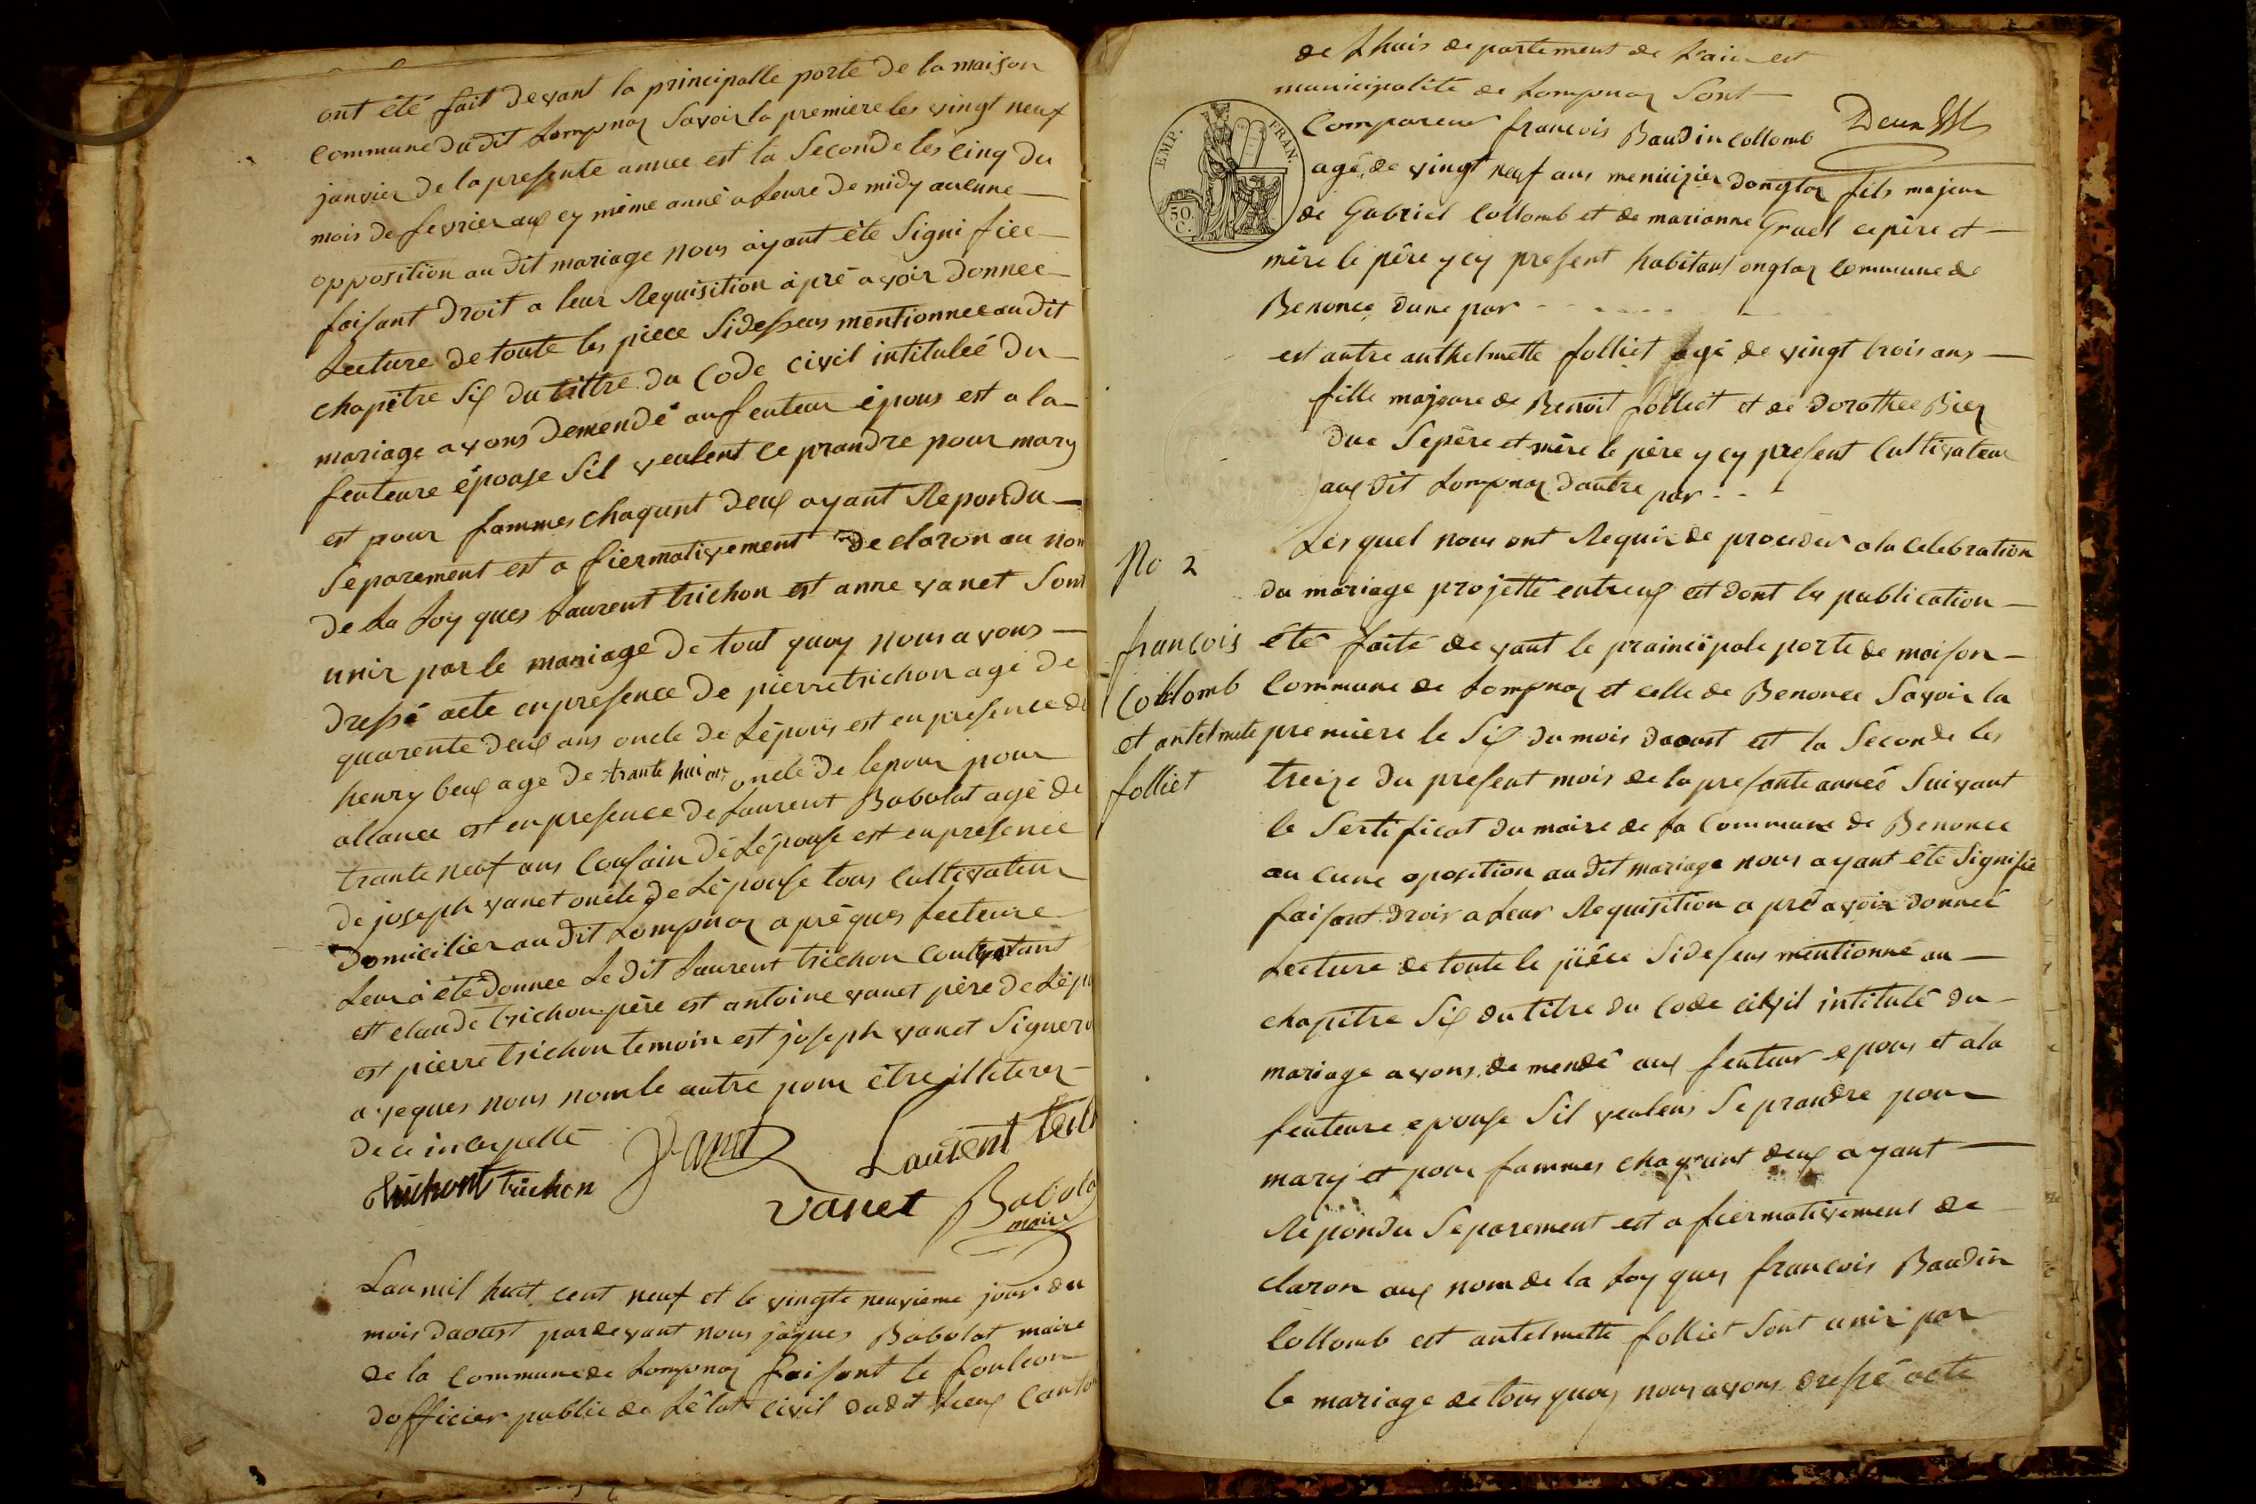 ont été fait devant la principalle porte de la maison
commune du dit Lompnaz Savoir la premiere les vingt neuf
janvier de la presente annee est la Seconde les cinq du
mois de fevrier aux cy même anné a Leure de midy aucune
opposition au dit mariage nous ayant été Signifiee
faisant droit a leur Requisition apré avoir donnee
Lecture de toute les piece Sidessus mentionnee au dit
chapitre Six du tittre du Code civil intituleé du
mariage avons demendé au feuteur époux est a la
feuteure épouse Sil veulent ce prandre pour mary
est pour fammes chaqunt deux ayant Repondu
Separement est afiermativement declaron au nom
de La Loy ques Laurent trichon est anne vanet Sont
unir par le mariage de tout quoy nous avons
dressé acte en presence de pierre trichon age de
quarente deux ans oncle de Lépoux est en presence de
henry beux age de trante hui ans oncle de lepoux pour
aliance est en presence de Laurent Babolat agé de
trante neuf ans Cousain de Lépouse est en presence
de joseph vanet oncle de Lépouse tous cultivateur
domicilier au dit Lompnaz apré ques Lecteure
Leur a été donnee Le dit Laurent trichon Contratant
est claude trichon père est antoine vanet père de Lépou
est pierre trichon temoin est joseph vanet Signeron
aveques nous nom le autre pour être illiterez
de ce interpellé
trichon trichon Vanet Laurent
vanet Babolat
maire
Lan mil huit cent neuf et le vingte neuvieme jour du
mois daoust pardevant nous jaques Babolat maire
de la Commune de Lompnaz faisant le fontion
dofficier public de Létat civil dudit Lieux Canton
de Lhuis departement de Lain est
municipalité de Lompnaz Sont
Compareur francois Baudin Collomb
agé de vingt neuf ans menuizier donglaz fils majeur
de Gabriel Collomb et de marianne Gruel ce pire et
mère le père y cy present habitant onglaz Commune de
Benonce dune par
est autre anthelmette folliet agé de vingt trois ans
fille majeure de Benoit folliet et de dorothee Biez
duc Sepère et mère le père y cy present Cultivateur
aux dit Lompnaz dautre par
Lesquel nous ont Requis de proceder a la Celebration
du mariage projetté entreux est dont les publication
été faité devant le praincipale porte de maison
Commune de Lompnaz et celle de Benonce Savoir la
premiere le Six du mois daoust est la Seconde les
treize du present mois de la presante anneé Suivant
le Sertificat du maire de la Commune de Benonce
aucune oposition au dit mariage nous ayant été Signifié
faisant droir a Leur Requisition apré avoir donneé
Lecture de toute le piéce Sidesus mentionné au
chapitre Six du titre du Code civil intitulé du
mariage avons demendé aux feuteur epous et a la
feuteure epouse Sil veulens Se prandre pour
mary et pour fammes chaqunt deux ayant
Répondu Separement est afiermativement de
claron aux nom de la Loy ques francois Baudin
Collomb est antelmette folliet Sont unir par
le mariage de tous quoy nous avons dressé acte
EMP. FRAN.
50 C.
No 2
francois
Collomb
et antelmete
folliet